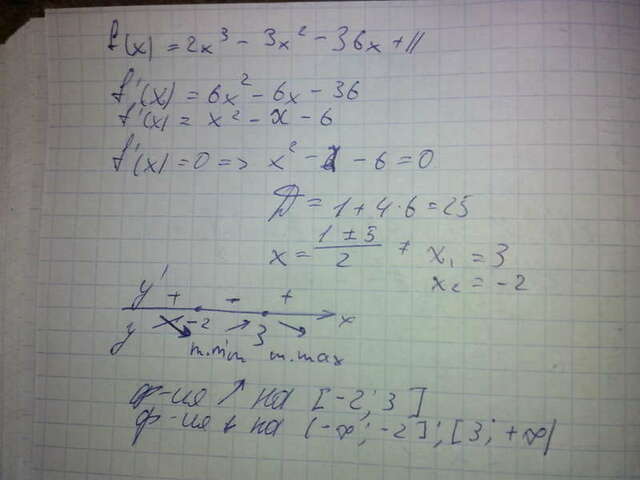 f(x) = 2x³ - 3x² - 36x + 11
f'(x) = 6x² - 6x - 36
f'(x) = x² - x - 6
f'(x) = 0 => x² - x - 6 = 0
D = 1 + 4·6 = 25
x = (1 ± 5)/2 x₁ = 3
x₂ = -2
y' + - +
-2 3 x
y ↘ ↗ ↘
m.min m.max
ф-ия ↗ на [-2; 3]
ф-ия ↓ на (-∞; -2]; [3; +∞)